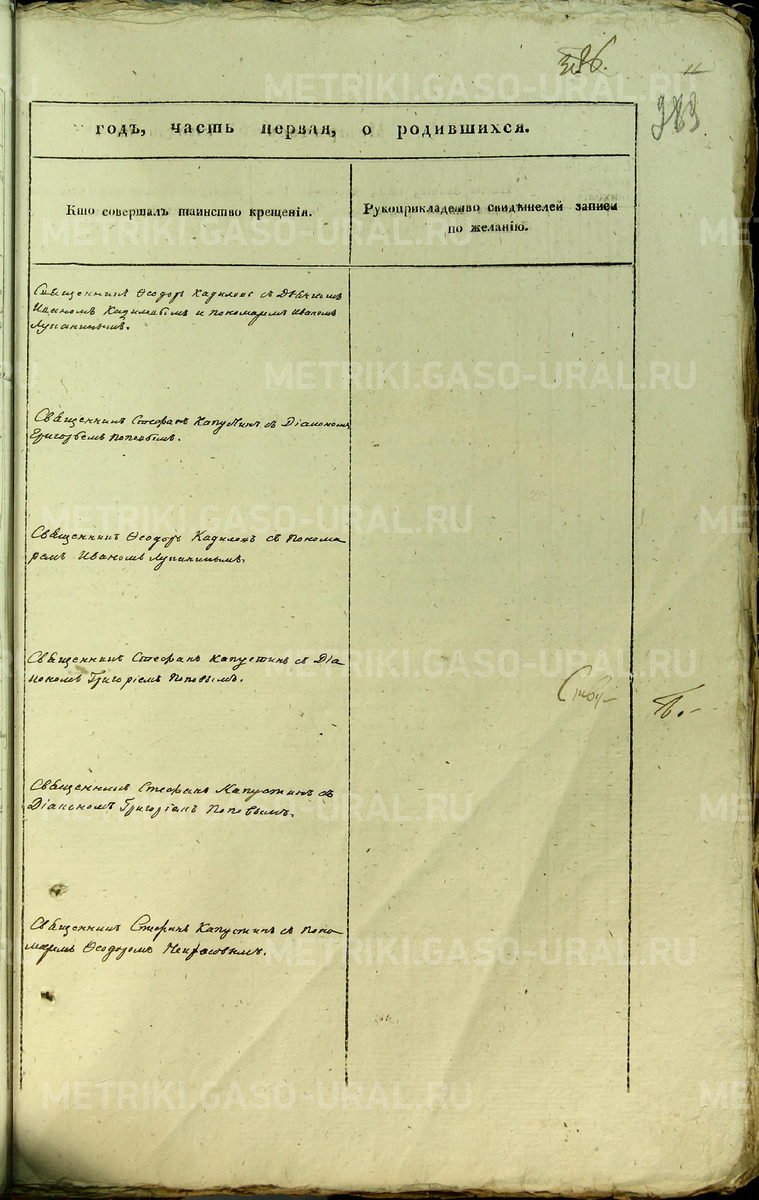 386.
11
383
годъ, часть первая, о родившихся.
Кто совершалъ таинство крещенія.
Рукоприкладство свидѣтелей записи
по желанію.
Священникъ Ѳеодоръ Кадиловъ съ
Иваномъ и пономаремъ Иваномъ
Лупанинымъ.
Священникъ Стефанъ Капустинъ съ Діакономъ
Григоріемъ Поповымъ.
Священникъ Ѳеодоръ Кадиловъ съ Понома
ремъ Иваномъ Лупанинымъ.
Священникъ Стефанъ Капустинъ съ Діа
кономъ Григоріемъ Поповымъ.
Священникъ Стефанъ Капустинъ съ
Діакономъ Григоріемъ Поповымъ.
Священникъ Стефанъ Капустинъ съ Поно
маремъ Ѳеодоромъ Некрасовымъ.
METRIKI.GASO-URAL.RU